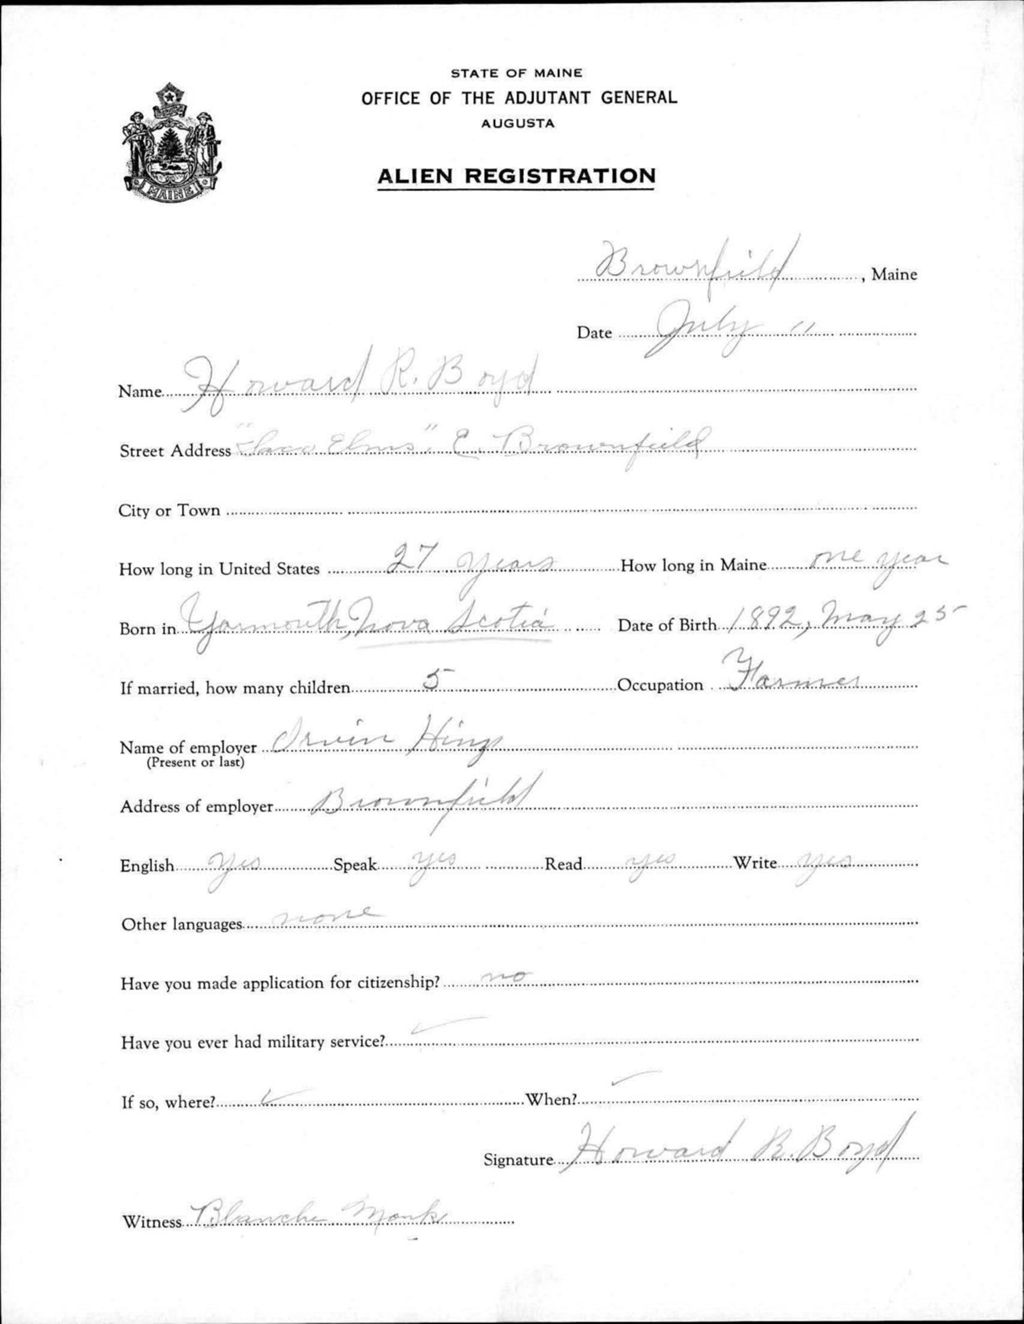 STATE OF MAINE
OFFICE OF THE ADJUTANT GENERAL
AUGUSTA
ALIEN REGISTRATION
MAINE
Brownfield, Maine
Date July 11
Name Howard R. Boyd
Street Address "Saco Elms", E. Brownfield
City or Town
How long in United States 27 years How long in Maine one year
Born in Yarmouth, Nova Scotia Date of Birth 1892, May 25
If married, how many children 5 Occupation Farmer
Name of employer Irvin Hing
(Present or last)
Address of employer Brownfield
English yes Speak yes Read yes Write yes
Other languages none
Have you made application for citizenship? no
Have you ever had military service? ✓
If so, where? ✓ When? ✓
Signature Howard R. Boyd
Witness Blanche Monk